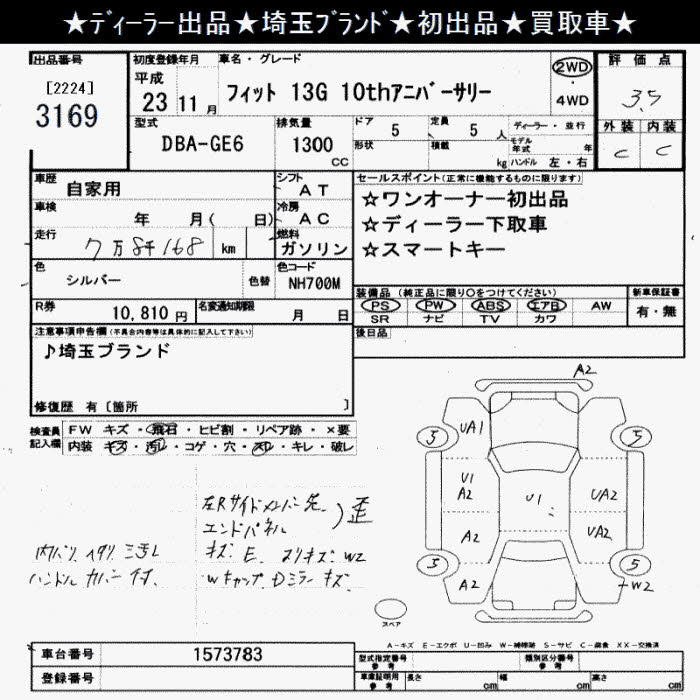 ★ディーラー出品★埼玉ブランド★初出品★買取車★
出品番号
[2224]
3169
初度登録年月
平成
23 11 月
車名・グレード
フィット 13G 10thアニバーサリー
2WD
・
4WD
評価点
3.5
外装 内装
C C
型式
DBA-GE6
排気量
1300
CC
ドア
5
形状
定員
5 人
積載
kg
ディーラー・並行
モデル年式 年
ハンドル 左・右
車歴
自家用
シフト
AT
車検
年 月( 日)
冷房
AC
走行
7万8千168 km
燃料
ガソリン
色
シルバー
色替
色コード
NH700M
R券
10,810 円
名変通知期限
月 日
セールスポイント(正常に機能するものに限ります)
☆ワンオーナー初出品
☆ディーラー下取車
☆スマートキー
装備品 (純正品に限り〇をつけてください)
PS PW ABS エアB AW
SR ナビ TV カワ
新車保証書
有・無
後日品
注意事項申告欄(不具合内容等は具体的に記入して下さい)
♪埼玉ブランド
修復歴 有〔箇所 〕
検査員記入欄
FW キズ・飛石・ヒビ割・リペア跡・×要
内装 キズ・汚レ・コゲ・穴・スレ・キレ・破レ
左Rサイドメンバー先
エンドパネル
)歪
キズ・E スリキズ・W2
Wキャップ、Dミラーキズ、
ハンドルカバー付、
A2
UA1
3
5
U1
A2
U1
UA2
A2
UA2
3
5
A2
W2
スペア
A-キズ E-エクボ U-凹み W-補修跡 S-サビ C-腐食 XX-交換済
車台番号
1573783
登録番号
型式指定番号
参考
類別区分番号
参考
車庫証明用
参考
長さ cm
幅 cm
高さ cm